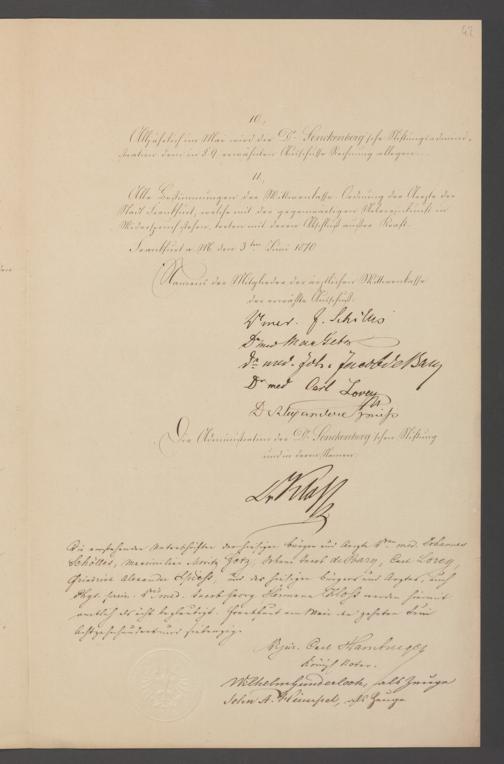 42
10.
Alljährlich im Mai wird der Dr. Senckenberg'sche Stiftungsadmini-
stration dem in § 9 erwähnten Ausschusse Rechnung ablegen.
11.
Alle Bestimmungen der Wittwenkasse-Ordnung der Aerzte der
Stadt Frankfurt, welche mit der gegenwärtigen Uebereinkunft in
Widerspruch stehen, treten mit deren Abschluß ausser Kraft.
Frankfurt a. M. den 3ten Juni 1870
Namens der Mitglieder der ärztlichen Wittwenkasse
der erwählte Ausschuß.
Dr med. J. Schölles
Dr med Max Getz
Dr med. Joh. Jacob de Bary
Dr med Carl Lorey
Dr Alexander
Die Administration der Dr. Senckenberg'schen Stiftung
und in deren Namen
Dr Kloß
Die vorstehenden Unterschriften der hiesigen Bürger und Aerzte Dr. med. Johannes
Schölles, Maximilian Getz, Johann Jacob de Bary, Carl Lorey,
Alexander und des hiesigen Bürgers und Arztes, auch
Dr. med. Jacob Georg Hermann Kloß werden hiermit
amtlich als ächt beglaubigt. Frankfurt am Main den zehnten Juni
Achtzehnhundert und siebenzig.
Carl Hamburger
Königl. Notar.
Wilhelm Hunderloch, als Zeuge
John A. als Zeuge